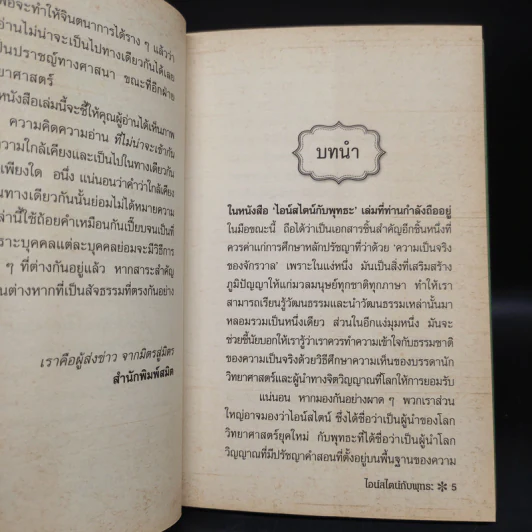 พอจะทำให้จินตนาการได้ราง ๆ แล้วว่า
อ่านไม่น่าจะเป็นไปทางเดียวกันได้เลย
ป็นปราชญ์ทางศาสนา ขณะที่อีกฝ่าย
ยาศาสตร์
หนังสือเล่มนี้จะชี้ให้คุณผู้อ่านได้เห็นภาพ
ความคิดความอ่าน ที่ไม่น่าจะเข้ากัน
ความใกล้เคียงและเป็นไปในทางเดียวกัน
เพียงใด อนึ่ง แน่นอนว่าคำว่าใกล้เคียง
นทางเดียวกันนั้นย่อมไม่ได้หมายความ
ล่านี้ใช้ถ้อยคำเหมือนกันเปี๊ยบจนเป็นที่
ราะบุคคลแต่ละบุคคลย่อมจะมีวิธีการ
ๆ ที่ต่างกันอยู่แล้ว หากสาระสำคัญ
นต่างหากที่เป็นสัจธรรมที่ตรงกันอย่าง
เราคือผู้ส่งข่าว จากมิตรสู่มิตร
สำนักพิมพ์สมิต
บทนำ
ในหนังสือ ‘ไอน์สไตน์กับพุทธะ’ เล่มที่ท่านกำลังถืออยู่
ในมือขณะนี้ ถือได้ว่าเป็นเอกสารชิ้นสำคัญอีกชิ้นหนึ่งที่
ควรค่าแก่การศึกษาหลักปรัชญาที่ว่าด้วย ‘ความเป็นจริง
ของจักรวาล’ เพราะในแง่หนึ่ง มันเป็นสิ่งที่เสริมสร้าง
ภูมิปัญญาให้แก่มวลมนุษย์ทุกชาติทุกภาษา ทำให้เรา
สามารถเรียนรู้วัฒนธรรมและนำวัฒนธรรมเหล่านั้นมา
หลอมรวมเป็นหนึ่งเดียว ส่วนในอีกแง่มุมหนึ่ง มันจะ
ช่วยชี้นัยบอกให้เรารู้ว่าเราควรทำความเข้าใจกับธรรมชาติ
ของความเป็นจริงด้วยวิธีศึกษาความเห็นของบรรดานัก
วิทยาศาสตร์และผู้นำทางจิตวิญญาณที่โลกให้การยอมรับ
แน่นอน หากมองกันอย่างผาด ๆ พวกเราส่วน
ใหญ่อาจมองว่าไอน์สไตน์ ซึ่งได้ชื่อว่าเป็นผู้นำของโลก
วิทยาศาสตร์ยุคใหม่ กับพุทธะที่ได้ชื่อว่าเป็นผู้นำโลก
วิญญาณที่มีปรัชญาคำสอนที่ตั้งอยู่บนพื้นฐานของความ
ไอน์สไตน์กับพุทธะ ✻ 5